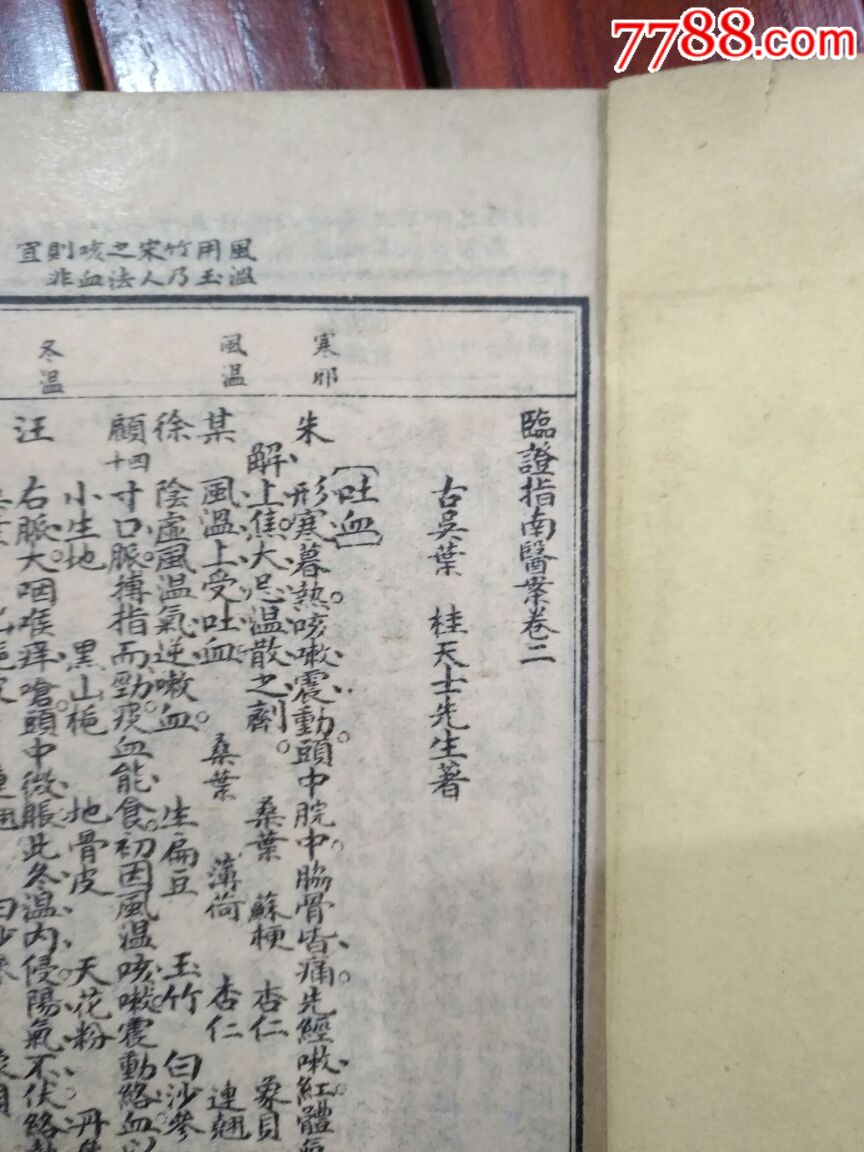 7788.com
臨證指南醫案卷二
古吳葉　桂天士先生著
〔吐血〕
寒邪
朱　形寒暮熱。咳嗽震動。頭中脘中脇骨皆痛。先經嗽紅。體氣
解。上焦。大忌溫散之劑。　桑葉　蘇梗　杏仁　象貝
風溫
某　風溫上受吐血。　桑葉　薄荷　杏仁　連翹
徐　陰虛風溫。氣逆嗽血。　生扁豆　玉竹　白沙參
顧四十　寸口脈搏指而勁。痰血能食。初因風溫咳嗽。震動絡血以
小生地　黑山梔　地骨皮　天花粉　丹
冬溫
汪　右脈大。咽喉痒嗆。頭中微脹。此冬溫內侵。陽氣不伏。絡
連翹　白沙參　象貝
風溫
用玉
竹乃
宋人
之法
咳血
則非
宜